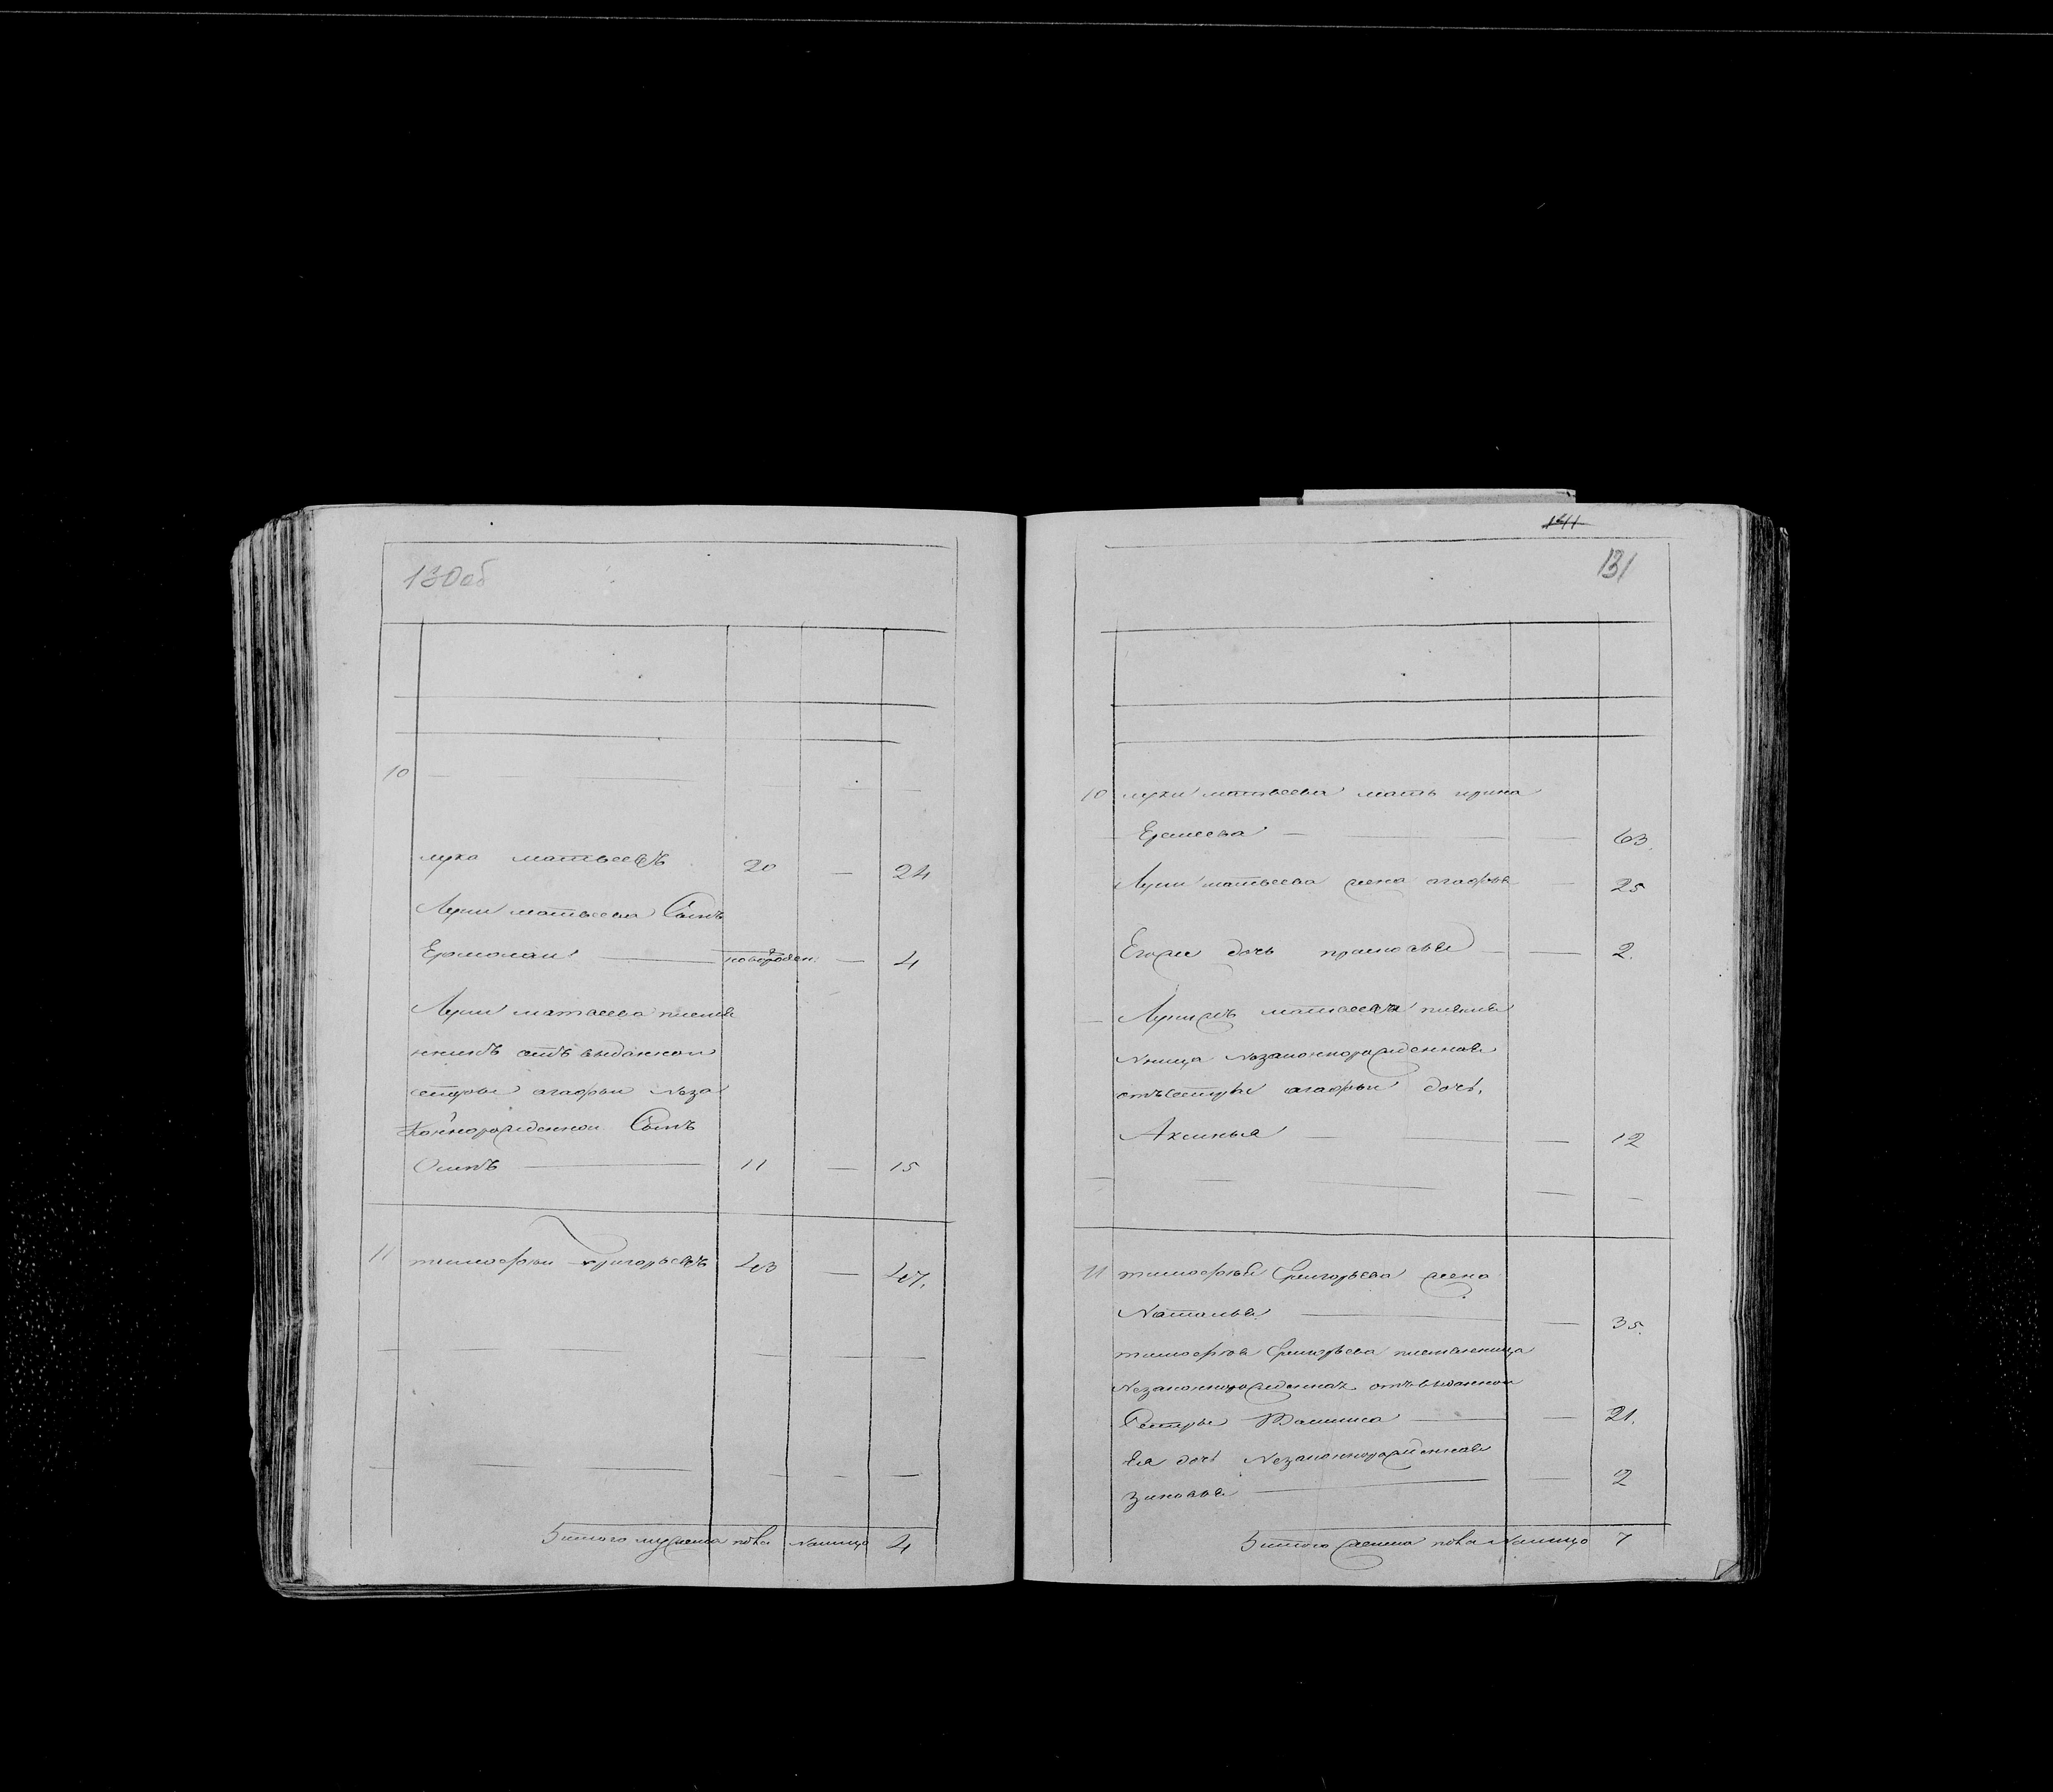 130 об
10
лука матвеевъ 20 — 24
Луки матвеева Сынъ
Ермолаи новорожден. — 4
Луки матвеева племя
нникъ отъ выданной
сестры агафьи неза
коннорожденной Сынъ
Осипъ 11 — 15
11 тимофеи григорьевъ 43 — 47.
Итого мужеска пола налицо 4
141
131
10 луки матвеева мать ирина
63.
Луки матвеева жена агафья — 25
Егоже дочь прасковья — 2.
Лукижъ матвеева племя
нница незаконнорожденная
отъ сестры агафьи дочь,
Аксинья — 12
11 тимофея Григорьева жена
Наталья — 35.
тимофея Григорьева племянница
незаконнорожденная отъ выданной
Сестры — 21.
Ея дочь незаконнорожденная
зиновья — 2
Итого женска пола налицо 7